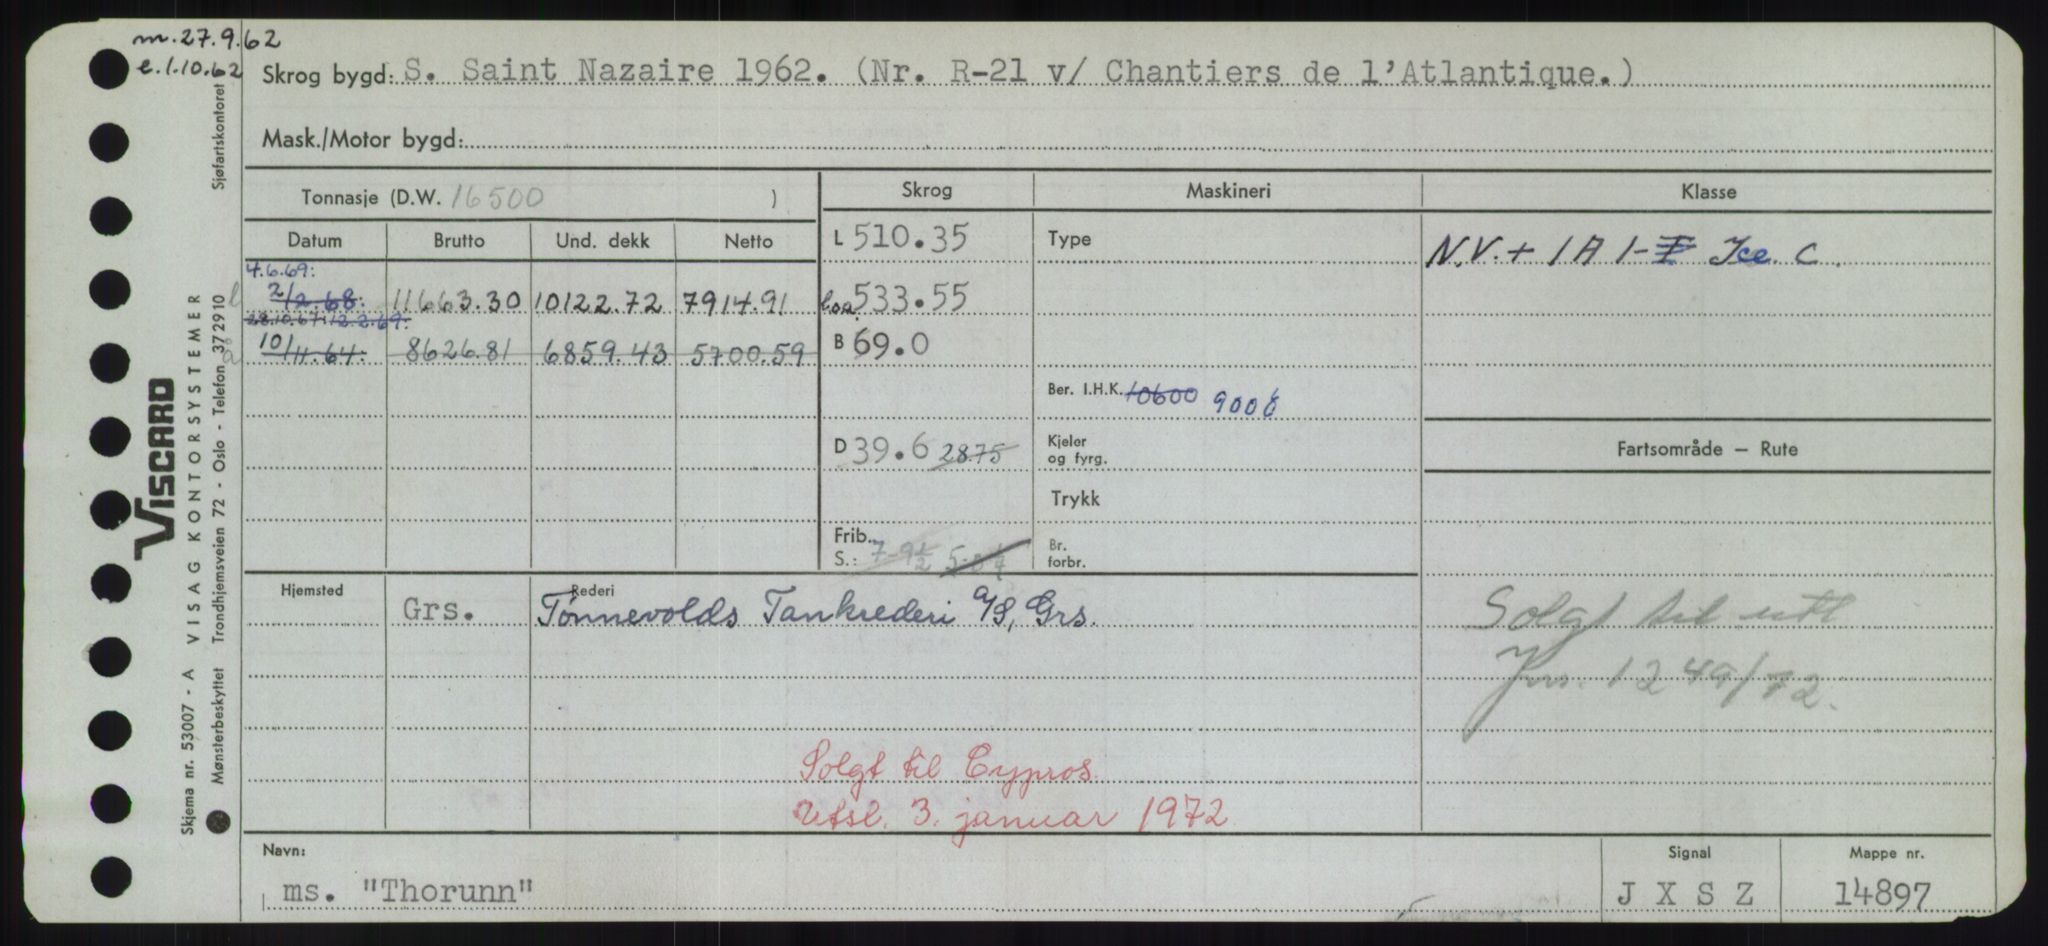 m. 27.9.62
e. 1.10.62
Skrog bygd: S. Saint Nazaire 1962. (Nr. R-21 v/ Chantiers de l'Atlantique.)
Mask./Motor bygd:
Tonnasje (D.W. 16500 )
Skrog Maskineri Klasse
Datum Brutto Und. dekk Netto
L 510.35 Type
N.V. + 1A1-I Ice. C.
4.6.69:
2/2.68: 11663.30 10122.72 7914.91
loa 533.55
28.10.67: 12.2.69:
10/11.64: 8626.81 6859.43 5700.59
B 69.0
Ber. I.H.K. 10600 9000
D 39.6 28.75
Kjeler
og fyrg.
Fartsområde — Rute
Trykk
Frib.
S.: 7-9½
Br.
forbr.
Hjemsted Rederi
Grs. Tønnevolds Tankrederi A/S, Grs.
Solgt til utl
Jnr. 1249/72.
Solgt til Cypros.
Utsl. 3. januar 1972
Navn: Signal Mappe nr.
ms. "Thorunn" J X S Z 14897
VISCARD
Skjema nr. 53007 - A VISAG KONTORSYSTEMER
Mønsterbeskyttet Trondhjemsveien 72 - Oslo - Telefon 372910 Sjøfartskontoret